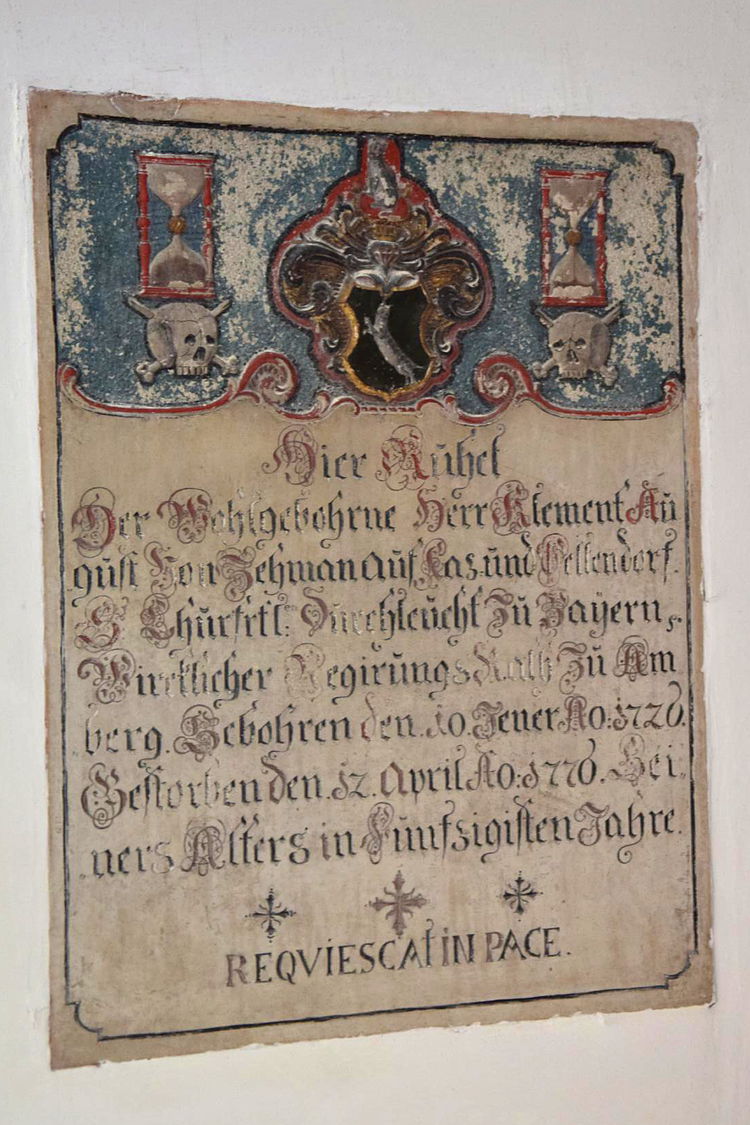 Hier Rühet
Der Wohlgebohrne Herr Klement Au
gust Von Zehman auf Kas. und Fellendorf.
S. Churfrtl: Durchleücht Zü Bayern,
Wircklicher Regirüngs Rath Zü Am
berg. Gebohren den. 10. Jener Ao: 1726.
Gestorben den. 12. April Ao: 1776. Sei:
ners Alters in Fünfzigisten Jahre.
REQVIESCAT IN PACE.